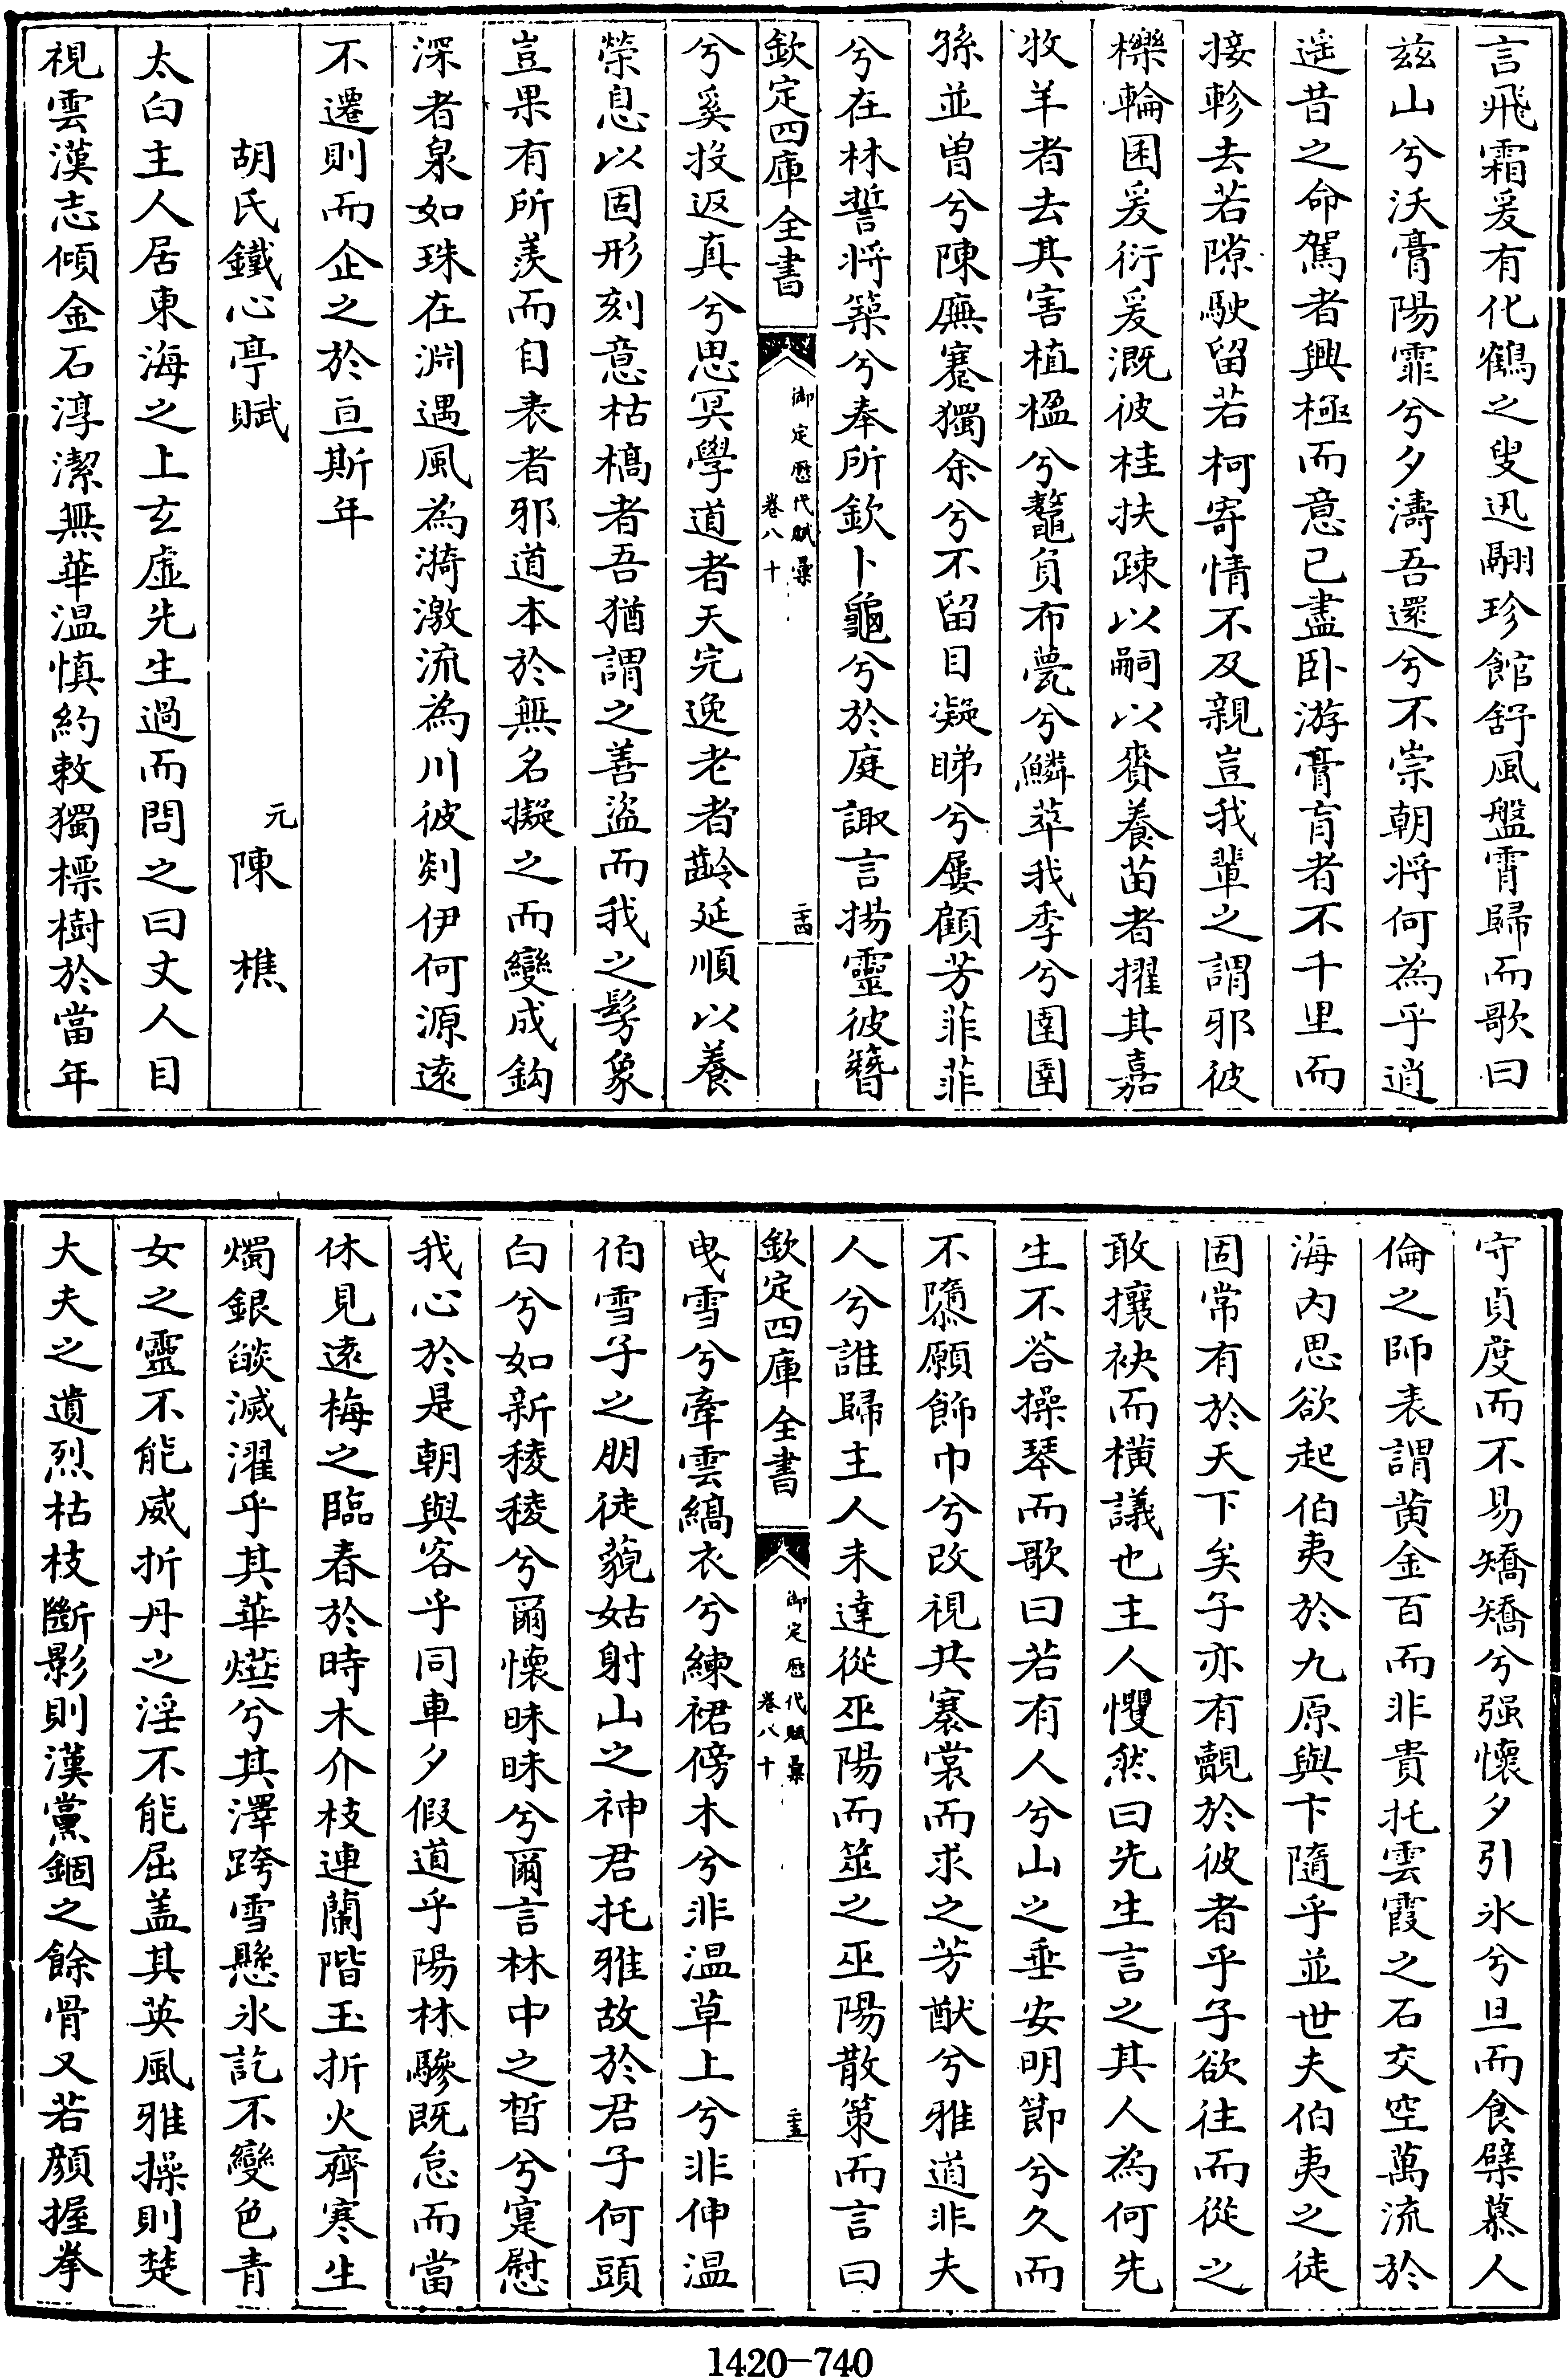 言飛霜爰有化鶴之叟迅翮珍館舒風盤霄歸而歌曰
兹山兮沃膏陽霏兮夕濤吾還兮不崇朝將何為乎逍
遥昔之命駕者興極而意已盡卧游膏肓者不千里而
接軫去若隙駛留若柯寄情不及親豈我輩之謂邪彼
櫟輪囷爰衍爰溉彼桂扶疎以嗣以賚養苗者擢其嘉
牧羊者去其害植楹兮鼇負布甍兮鱗萃我季兮圉圉
孫並曽兮陳廡蹇獨余兮不留目凝睇兮屢顧芳菲菲
兮在林誓將築兮奉所欽卜龜兮於庭諏言揚靈彼簪
欽定四庫全書
御定歴代賦彙
卷八十
二十四
兮奚投返真兮思冥學道者天完逸老者齡延順以養
榮息以固形刻意枯槁者吾猶謂之善盗而我之髣象
豈果有所羨而自表者邪道本於無名擬之而變成鈎
深者泉如珠在淵遇風為漪激流為川彼剡伊何源遠
不遷則而企之於亘斯年
胡氏鐵心亭賦
元 陳 樵
太白主人居東海之上玄虚先生過而問之曰丈人目
視雲漢志傾金石淳潔無華温慎約敕獨標樹於當年
守貞度而不易矯矯兮强懷夕引氷兮旦而食檗慕人
倫之師表謂黄金百而非貴托雲霞之石交空萬流於
海内思欲起伯夷於九原與卞隨乎並世夫伯夷之徒
固常有於天下矣子亦有覿於彼者乎子欲往而從之
敢攘袂而横議也主人懼然曰先生言之其人為何先
生不荅操琴而歌曰若有人兮山之垂安明節兮久而
不隳願飾巾兮改視共褰裳而求之芳猷兮雅道非夫
人兮誰歸主人未達從巫陽而筮之巫陽散策而言曰
欽定四庫全書
御定歴代賦彙
卷八十
二十五
曵雪兮牽雲縞衣兮練裙傍木兮非温草上兮非伸温
伯雪子之朋徒藐姑射山之神君托雅故於君子何頭
白兮如新稜稜兮爾懷昧昧兮爾言林中之晳兮寔慰
我心於是朝與客乎同車夕假道乎陽林驂既怠而當
休見遠梅之臨春於時木介枝連蘭階玉折火齊寒生
燭銀燄滅濯乎其華爗兮其澤跨雪懸氷訖不變色青
女之靈不能威折丹之淫不能屈盖其英風雅操則楚
大夫之遺烈枯枝斷影則漢黨錮之餘骨又若顔握拳
1420—740